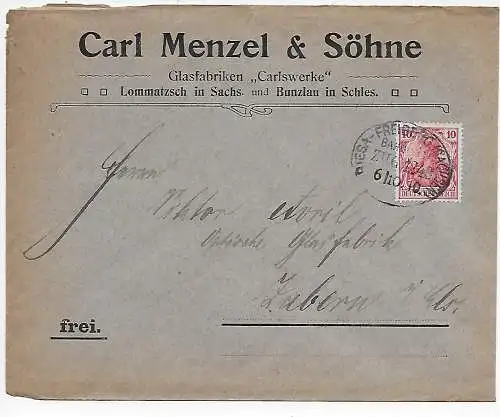 Carl Menzel & Söhne
Glasfabriken „Carlswerke"
Lommatzsch in Sachs. und Bunzlau in Schles.
10
RIESA-FREIBERG (SACHSEN)
BAHNPOST
ZUG
6 10 10
Herrn
Viktor Avril
Optische Glasfabrik
Zabern i/Els.
frei.